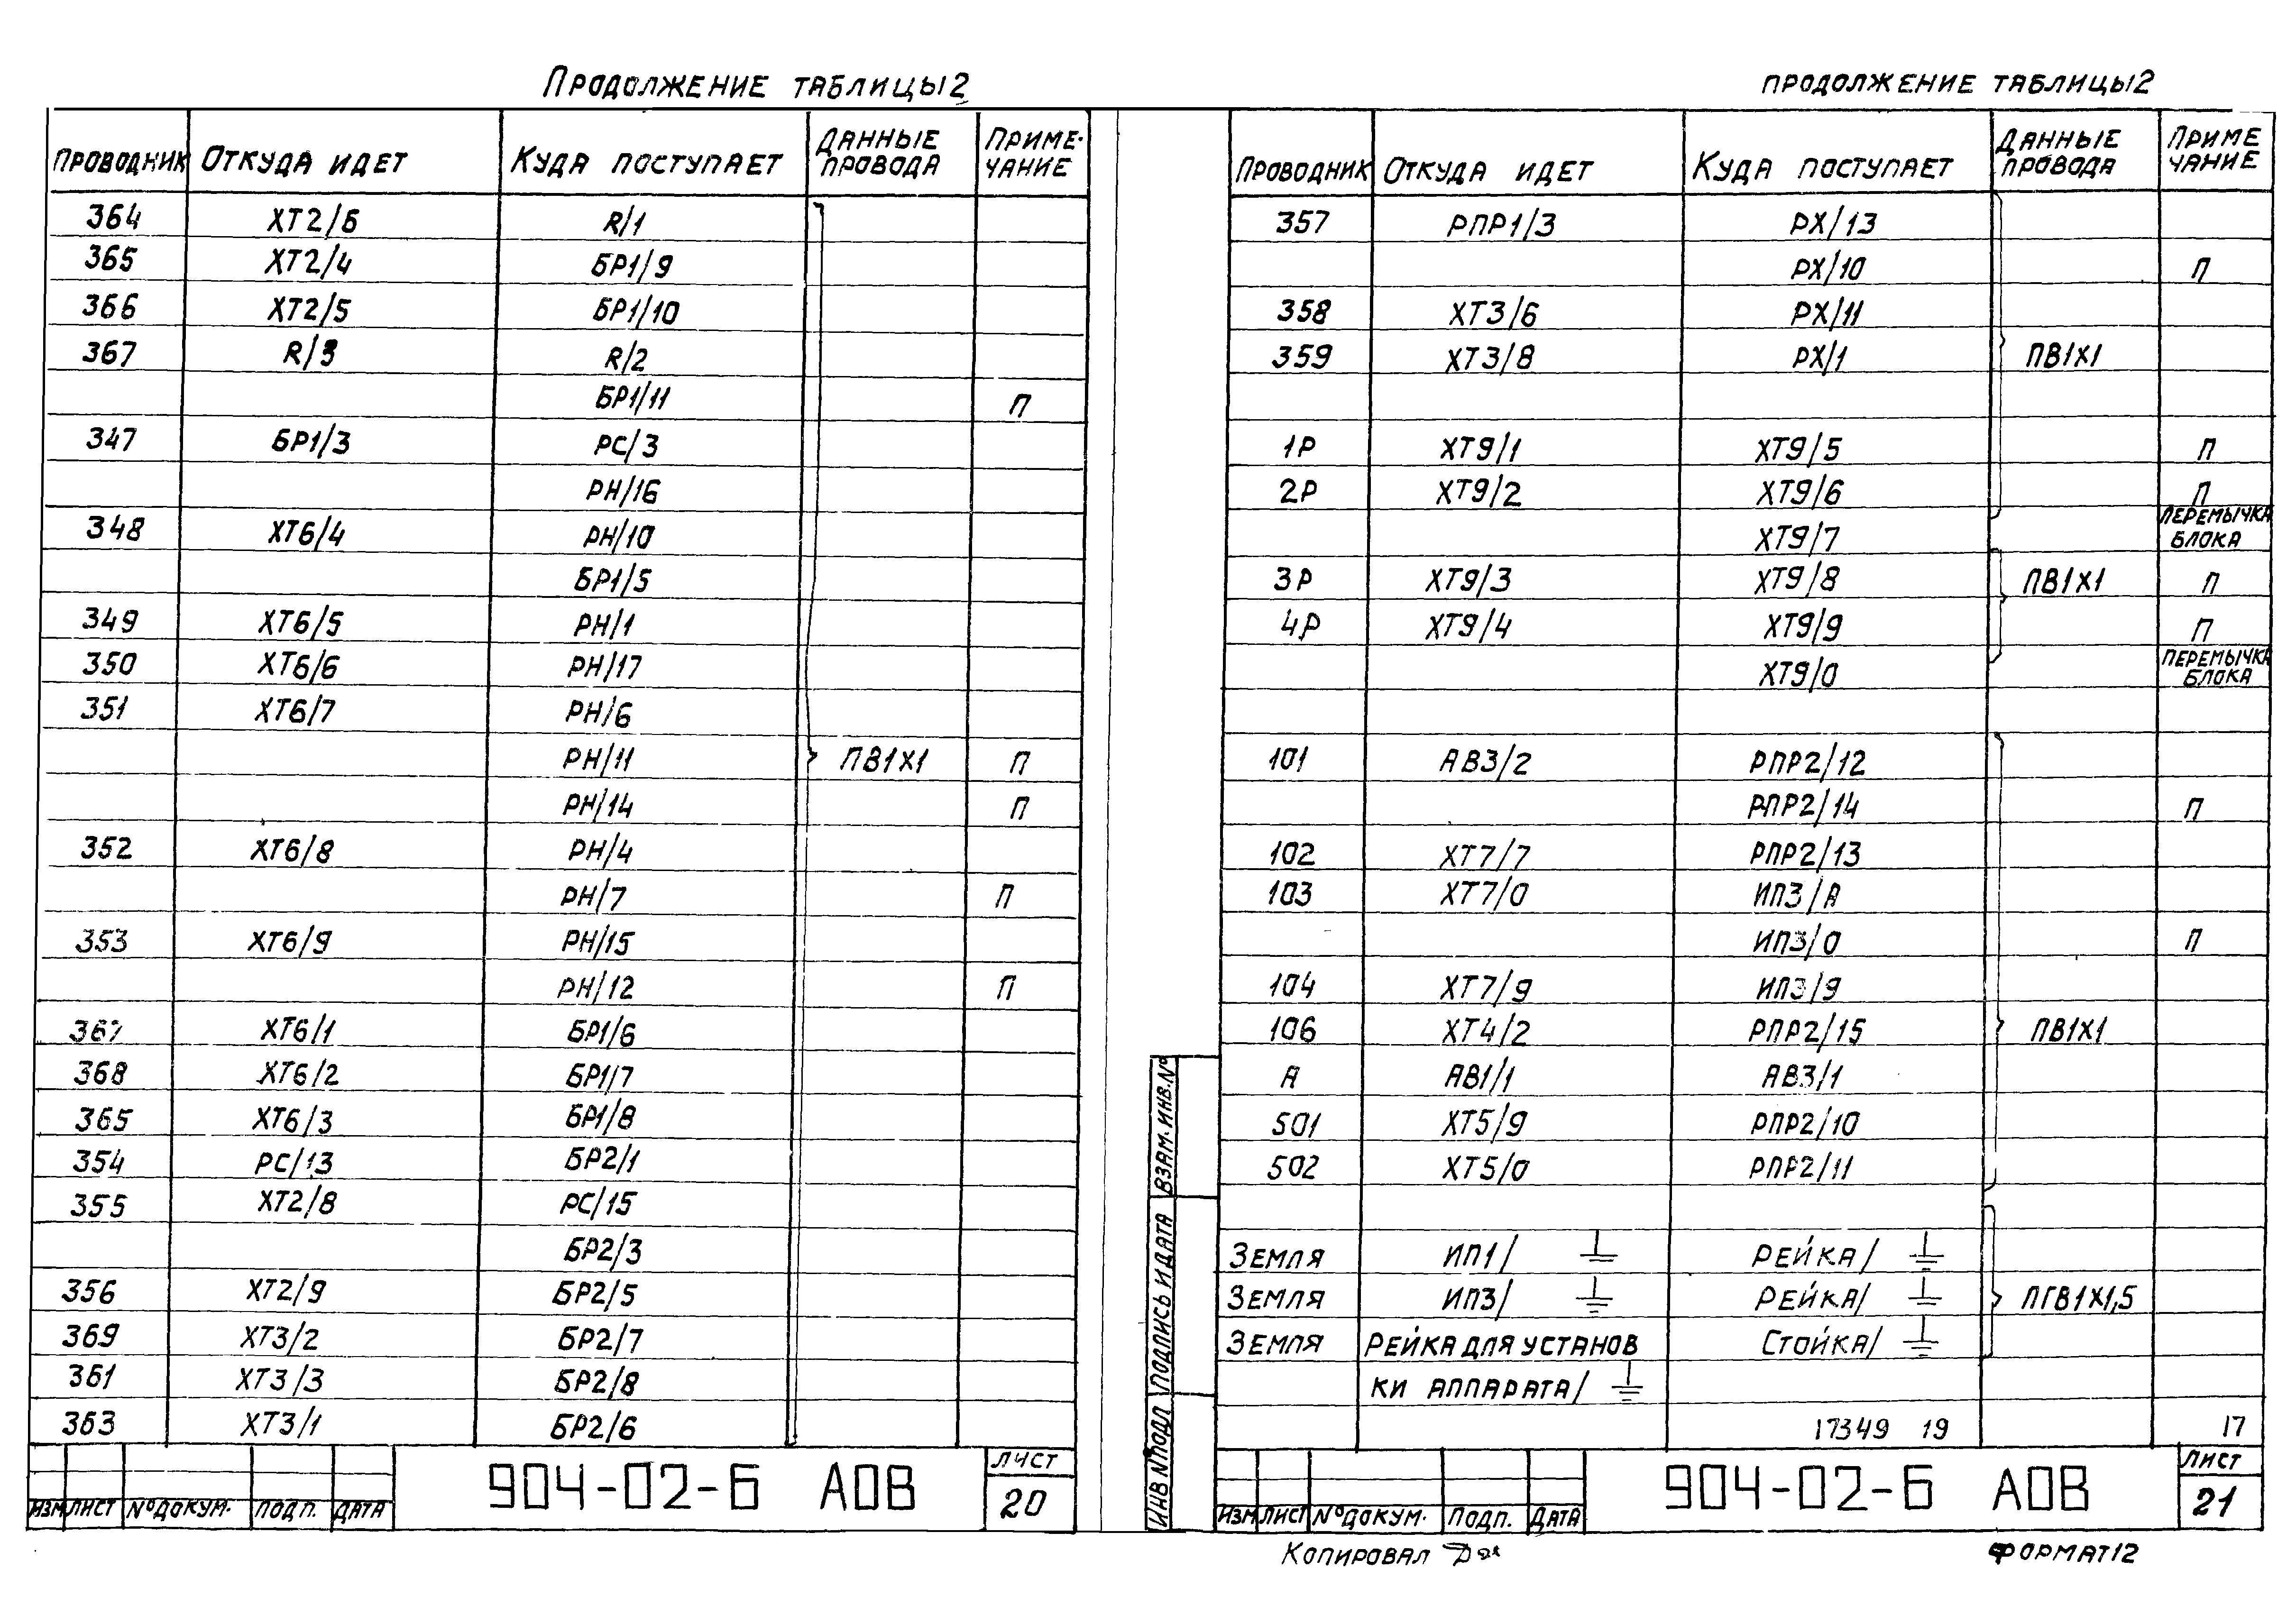 Продолжение таблицы 2
Проводник Откуда идет Куда поступает Данные провода Приме-чание
364 ХТ2/6 R/1
365 ХТ2/4 БР1/9
366 ХТ2/5 БР1/10
367 R/3 R/2
БР1/11 П
347 БР1/3 РС/3
РН/16
348 ХТ6/4 РН/10
БР1/5
349 ХТ6/5 РН/1
350 ХТ6/6 РН/17
351 ХТ6/7 РН/6
РН/11 ПВ1Х1 П
РН/14 П
352 ХТ6/8 РН/4
РН/7 П
353 ХТ6/9 РН/15
РН/12 П
367 ХТ6/1 БР1/6
368 ХТ6/2 БР1/7
365 ХТ6/3 БР1/8
354 РС/13 БР2/1
355 ХТ2/8 РС/15
БР2/3
356 ХТ2/9 БР2/5
369 ХТ3/2 БР2/7
361 ХТ3/3 БР2/8
363 ХТ3/1 БР2/6
Изм Лист № докум. Подп. Дата
904-02-6 АОВ
Лист
20
Продолжение таблицы 2
Проводник Откуда идет Куда поступает Данные провода Приме чание
357 РПР1/3 РХ/13
РХ/10 П
358 ХТ3/6 РХ/11
359 ХТ3/8 РХ/1 ПВ1Х1
1Р ХТ9/1 ХТ9/5 П
2Р ХТ9/2 ХТ9/6 П
ХТ9/7 Перемычка блока
3Р ХТ9/3 ХТ9/8 ПВ1Х1 П
4Р ХТ9/4 ХТ9/9 П
ХТ9/0 Перемычка блока
101 АВ3/2 РПР2/12
РПР2/14 П
102 ХТ7/7 РПР2/13
103 ХТ7/0 ИП3/А
ИП3/0 П
104 ХТ7/9 ИП3/9
106 ХТ4/2 РПР2/15 ПВ1Х1
А АВ1/1 АВ3/1
501 ХТ5/9 РПР2/10
502 ХТ5/0 РПР2/11
Земля ИП1/ Рейка/
Земля ИП3/ Рейка/ ПГВ1Х1,5
Земля Рейка для установ Стойка/
ки аппарата/
17349 19 17
Взам. инв. №
Подпись и дата
Инв № подл
Изм Лист № докум. Подп. Дата
904-02-6 АОВ
Лист
21
Копировал
Формат 12